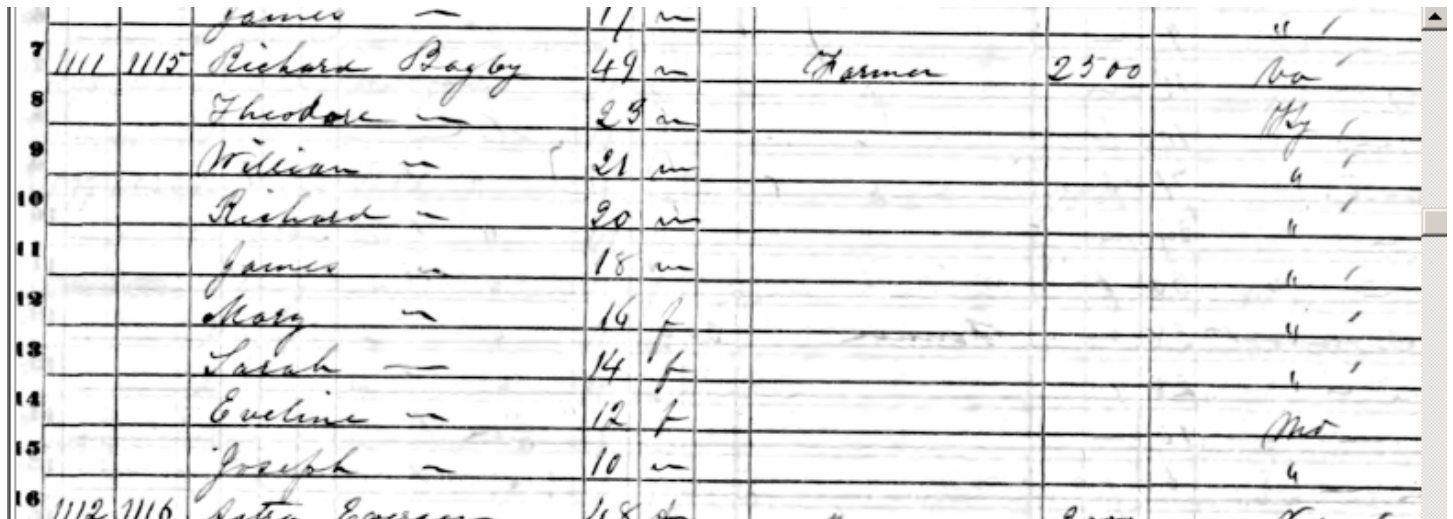 James — 17 m "
7 1111 1115 Richard Bagby 49 m Farmer 2500 Va
8 Theodore — 23 m Ky
9 William — 21 m "
10 Richard — 20 m "
11 James — 18 m "
12 Mary — 16 f "
13 Sarah — 14 f "
14 Eveline — 12 f Mo
15 Joseph — 10 m "
16 1112 1116 48